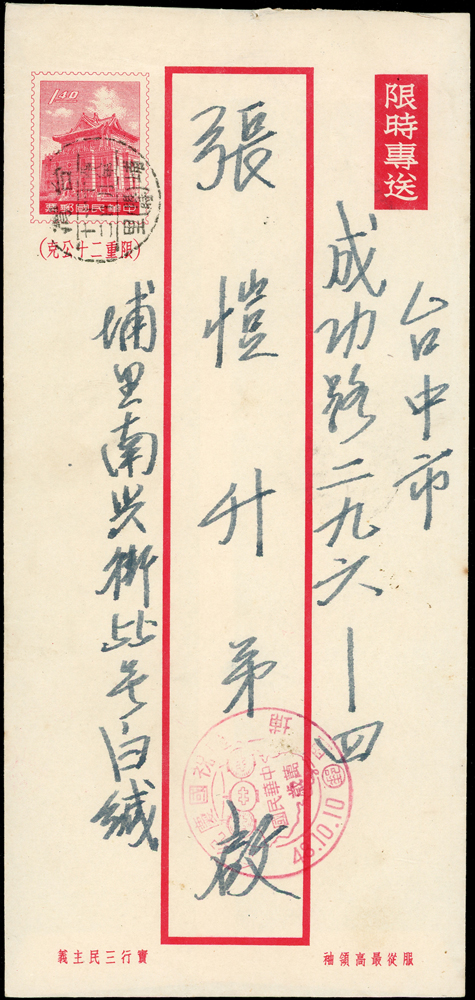 限時專送
台中市
成功路二九六-四
張愷升弟啟
埔里南兴街55号白緘
1.40
中華民國郵票
(限重二十公克)
48.10.10
服從最高領袖
實行三民主義